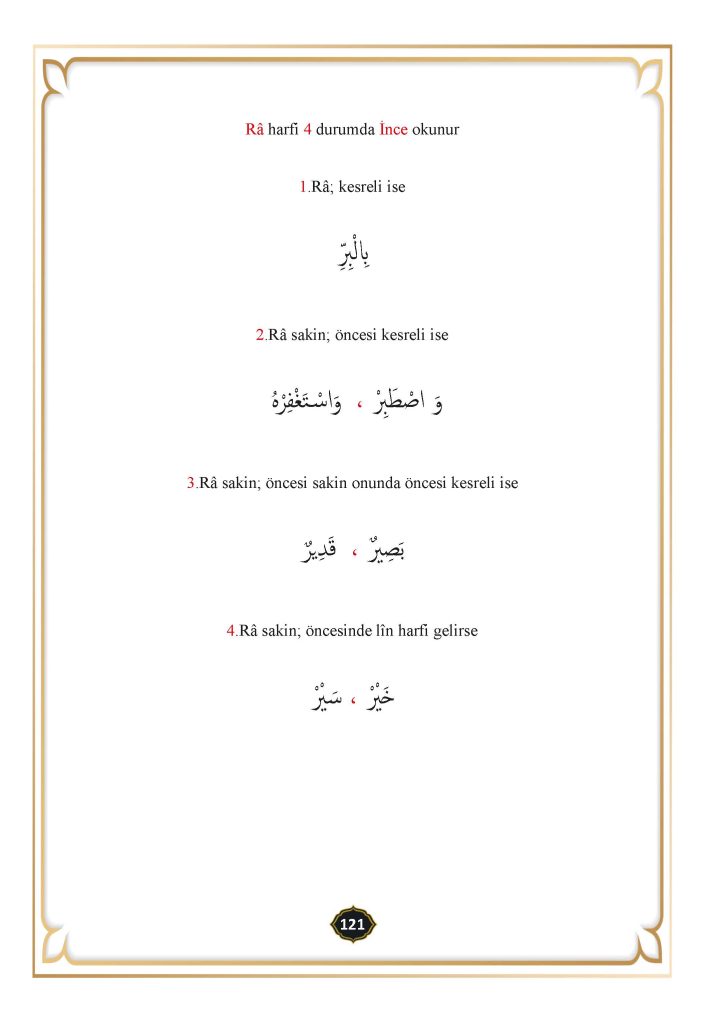 Râ harfi 4 durumda İnce okunur
1.Râ; kesreli ise
بِالْبِرِّ
2.Râ sakin; öncesi kesreli ise
وَ اصْطَبِرْ ، وَاسْتَغْفِرْهُ
3.Râ sakin; öncesi sakin onunda öncesi kesreli ise
بَصِيرٌ ، قَدِيرٌ
4.Râ sakin; öncesinde lîn harfi gelirse
خَيْرْ ، سَيْرْ
121